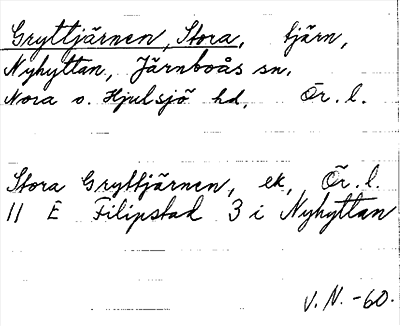 Gryttjärnen, Stora, tjärn,
Nyhyttan, Järnboås sn.
Nora o. Hjulsjö hd, Ör. l.
Stora Gryttjärnen, ek, Ör. l.
11 E Filipstad 3 i Nyhyttan
V. N. -60.